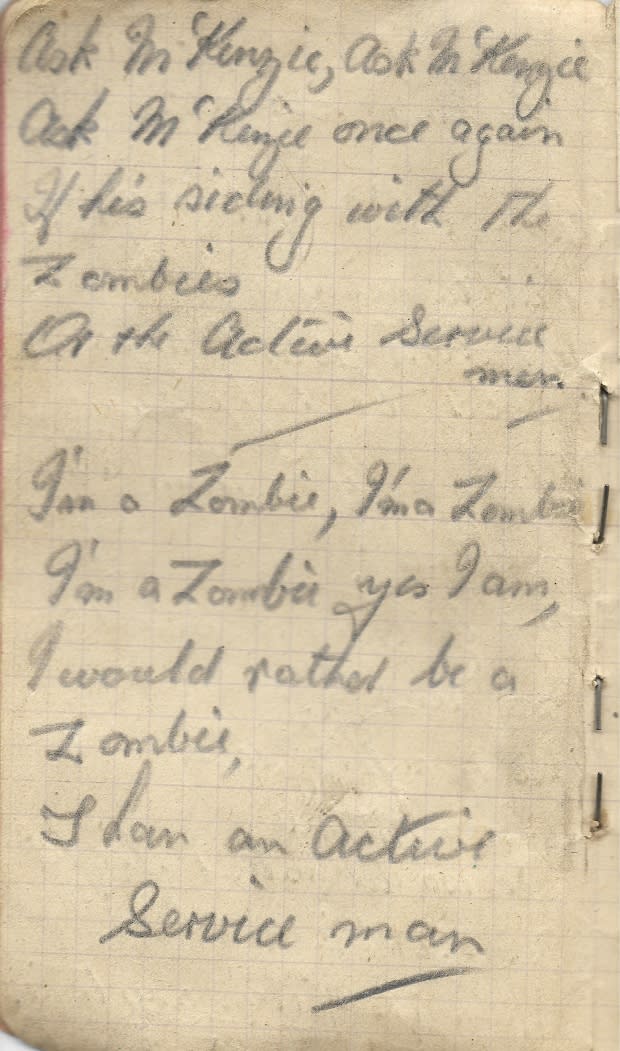 Ask M'Kenzie, Ask M'Kenzie
Ask M'Kenzie once again
If he's siding with the
Zombies
Or the Active Service
men
I'm a Zombie, I'm a Zombie
I'm a Zombie yes I am,
I would rather be a
Zombie,
Than an Active
Service man